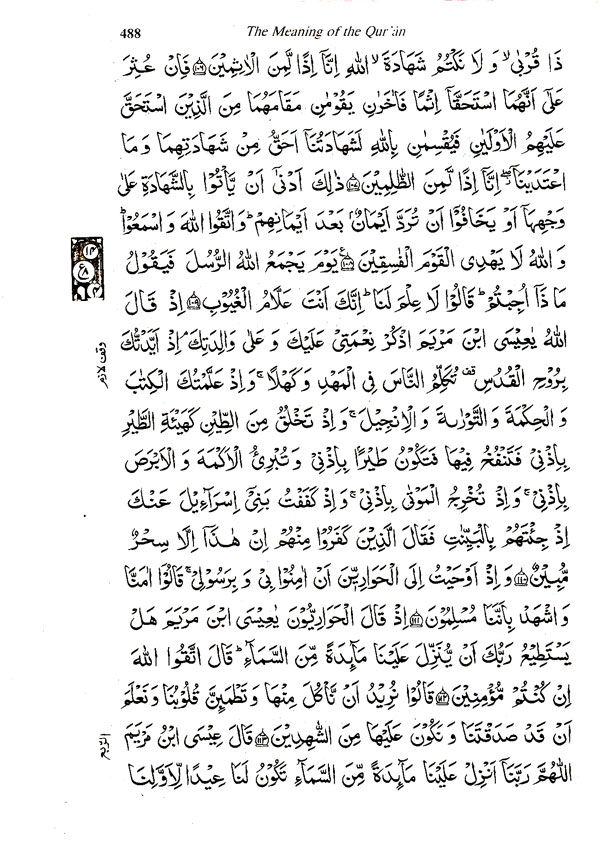 488 The Meaning of the Qur'ān
ذَا قُرْبٰىۙ وَ لَا نَكْتُمُ شَهَادَةَۙ اللّٰهِ اِنَّاۤ اِذًا لَّمِنَ الْاٰثِمِيْنَ ۝۱۰۶ فَاِنْ عُثِرَ
عَلٰۤى اَنَّهُمَا اسْتَحَقَّاۤ اِثْمًا فَاٰخَرٰنِ يَقُوْمٰنِ مَقَامَهُمَا مِنَ الَّذِيْنَ اسْتَحَقَّ
عَلَيْهِمُ الْاَوْلَيٰنِ فَيُقْسِمٰنِ بِاللّٰهِ لَشَهَادَتُنَاۤ اَحَقُّ مِنْ شَهَادَتِهِمَا وَ مَا
اعْتَدَيْنَاۤ ۖ اِنَّاۤ اِذًا لَّمِنَ الظّٰلِمِيْنَ ۝۱۰۷ ذٰلِكَ اَدْنٰۤى اَنْ يَّاْتُوْا بِالشَّهَادَةِ عَلٰى
وَجْهِهَاۤ اَوْ يَخَافُوْۤا اَنْ تُرَدَّ اَيْمَانٌۢ بَعْدَ اَيْمَانِهِمْ ؕ وَاتَّقُوا اللّٰهَ وَ اسْمَعُوْا ؕ
وَ اللّٰهُ لَا يَهْدِى الْقَوْمَ الْفٰسِقِيْنَ ۝۱۰۸ يَوْمَ يَجْمَعُ اللّٰهُ الرُّسُلَ فَيَقُوْلُ
مَا ذَاۤ اُجِبْتُمْ ؕ قَالُوْا لَا عِلْمَ لَنَا ؕ اِنَّكَ اَنْتَ عَلَّامُ الْغُيُوْبِ ۝۱۰۹ اِذْ قَالَ
اللّٰهُ يٰعِيْسَى ابْنَ مَرْيَمَ اذْكُرْ نِعْمَتِىْ عَلَيْكَ وَ عَلٰى وَالِدَتِكَ ۘ اِذْ اَيَّدْتُّكَ
بِرُوْحِ الْقُدُسِ ۟ تُكَلِّمُ النَّاسَ فِى الْمَهْدِ وَكَهْلًا ۚ وَاِذْ عَلَّمْتُكَ الْكِتٰبَ
وَ الْحِكْمَةَ وَ التَّوْرٰىةَ وَ الْاِنْجِيْلَ ۚ وَاِذْ تَخْلُقُ مِنَ الطِّيْنِ كَهَيْئَةِ الطَّيْرِ
بِاِذْنِىْ فَتَنْفُخُ فِيْهَا فَتَكُوْنُ طَيْرًۢا بِاِذْنِىْ وَ تُبْرِئُ الْاَكْمَهَ وَ الْاَبْرَصَ
بِاِذْنِىْ ۚ وَاِذْ تُخْرِجُ الْمَوْتٰى بِاِذْنِىْ ۚ وَاِذْ كَفَفْتُ بَنِىْۤ اِسْرَآءِيْلَ عَنْكَ
اِذْ جِئْتَهُمْ بِالْبَيِّنٰتِ فَقَالَ الَّذِيْنَ كَفَرُوْا مِنْهُمْ اِنْ هٰذَاۤ اِلَّا سِحْرٌ
مُّبِيْنٌ ۝۱۱۰ وَ اِذْ اَوْحَيْتُ اِلَى الْحَوَارِيّٖنَ اَنْ اٰمِنُوْا بِىْ وَ بِرَسُوْلِىْ ۚ قَالُوْۤا اٰمَنَّا
وَ اشْهَدْ بِاَنَّنَا مُسْلِمُوْنَ ۝۱۱۱ اِذْ قَالَ الْحَوَارِيُّوْنَ يٰعِيْسَى ابْنَ مَرْيَمَ هَلْ
يَسْتَطِيْعُ رَبُّكَ اَنْ يُّنَزِّلَ عَلَيْنَا مَآئِدَةً مِّنَ السَّمَآءِ ؕ قَالَ اتَّقُوا اللّٰهَ
اِنْ كُنْتُمْ مُّؤْمِنِيْنَ ۝۱۱۲ قَالُوْا نُرِيْدُ اَنْ نَّاْكُلَ مِنْهَا وَ تَطْمَئِنَّ قُلُوْبُنَا وَنَعْلَمَ
اَنْ قَدْ صَدَقْتَنَا وَ نَكُوْنَ عَلَيْهَا مِنَ الشّٰهِدِيْنَ ۝۱۱۳ قَالَ عِيْسَى ابْنُ مَرْيَمَ
اللّٰهُمَّ رَبَّنَاۤ اَنْزِلْ عَلَيْنَا مَآئِدَةً مِّنَ السَّمَآءِ تَكُوْنُ لَنَا عِيْدًا لِّاَوَّلِنَا
وقف لازم